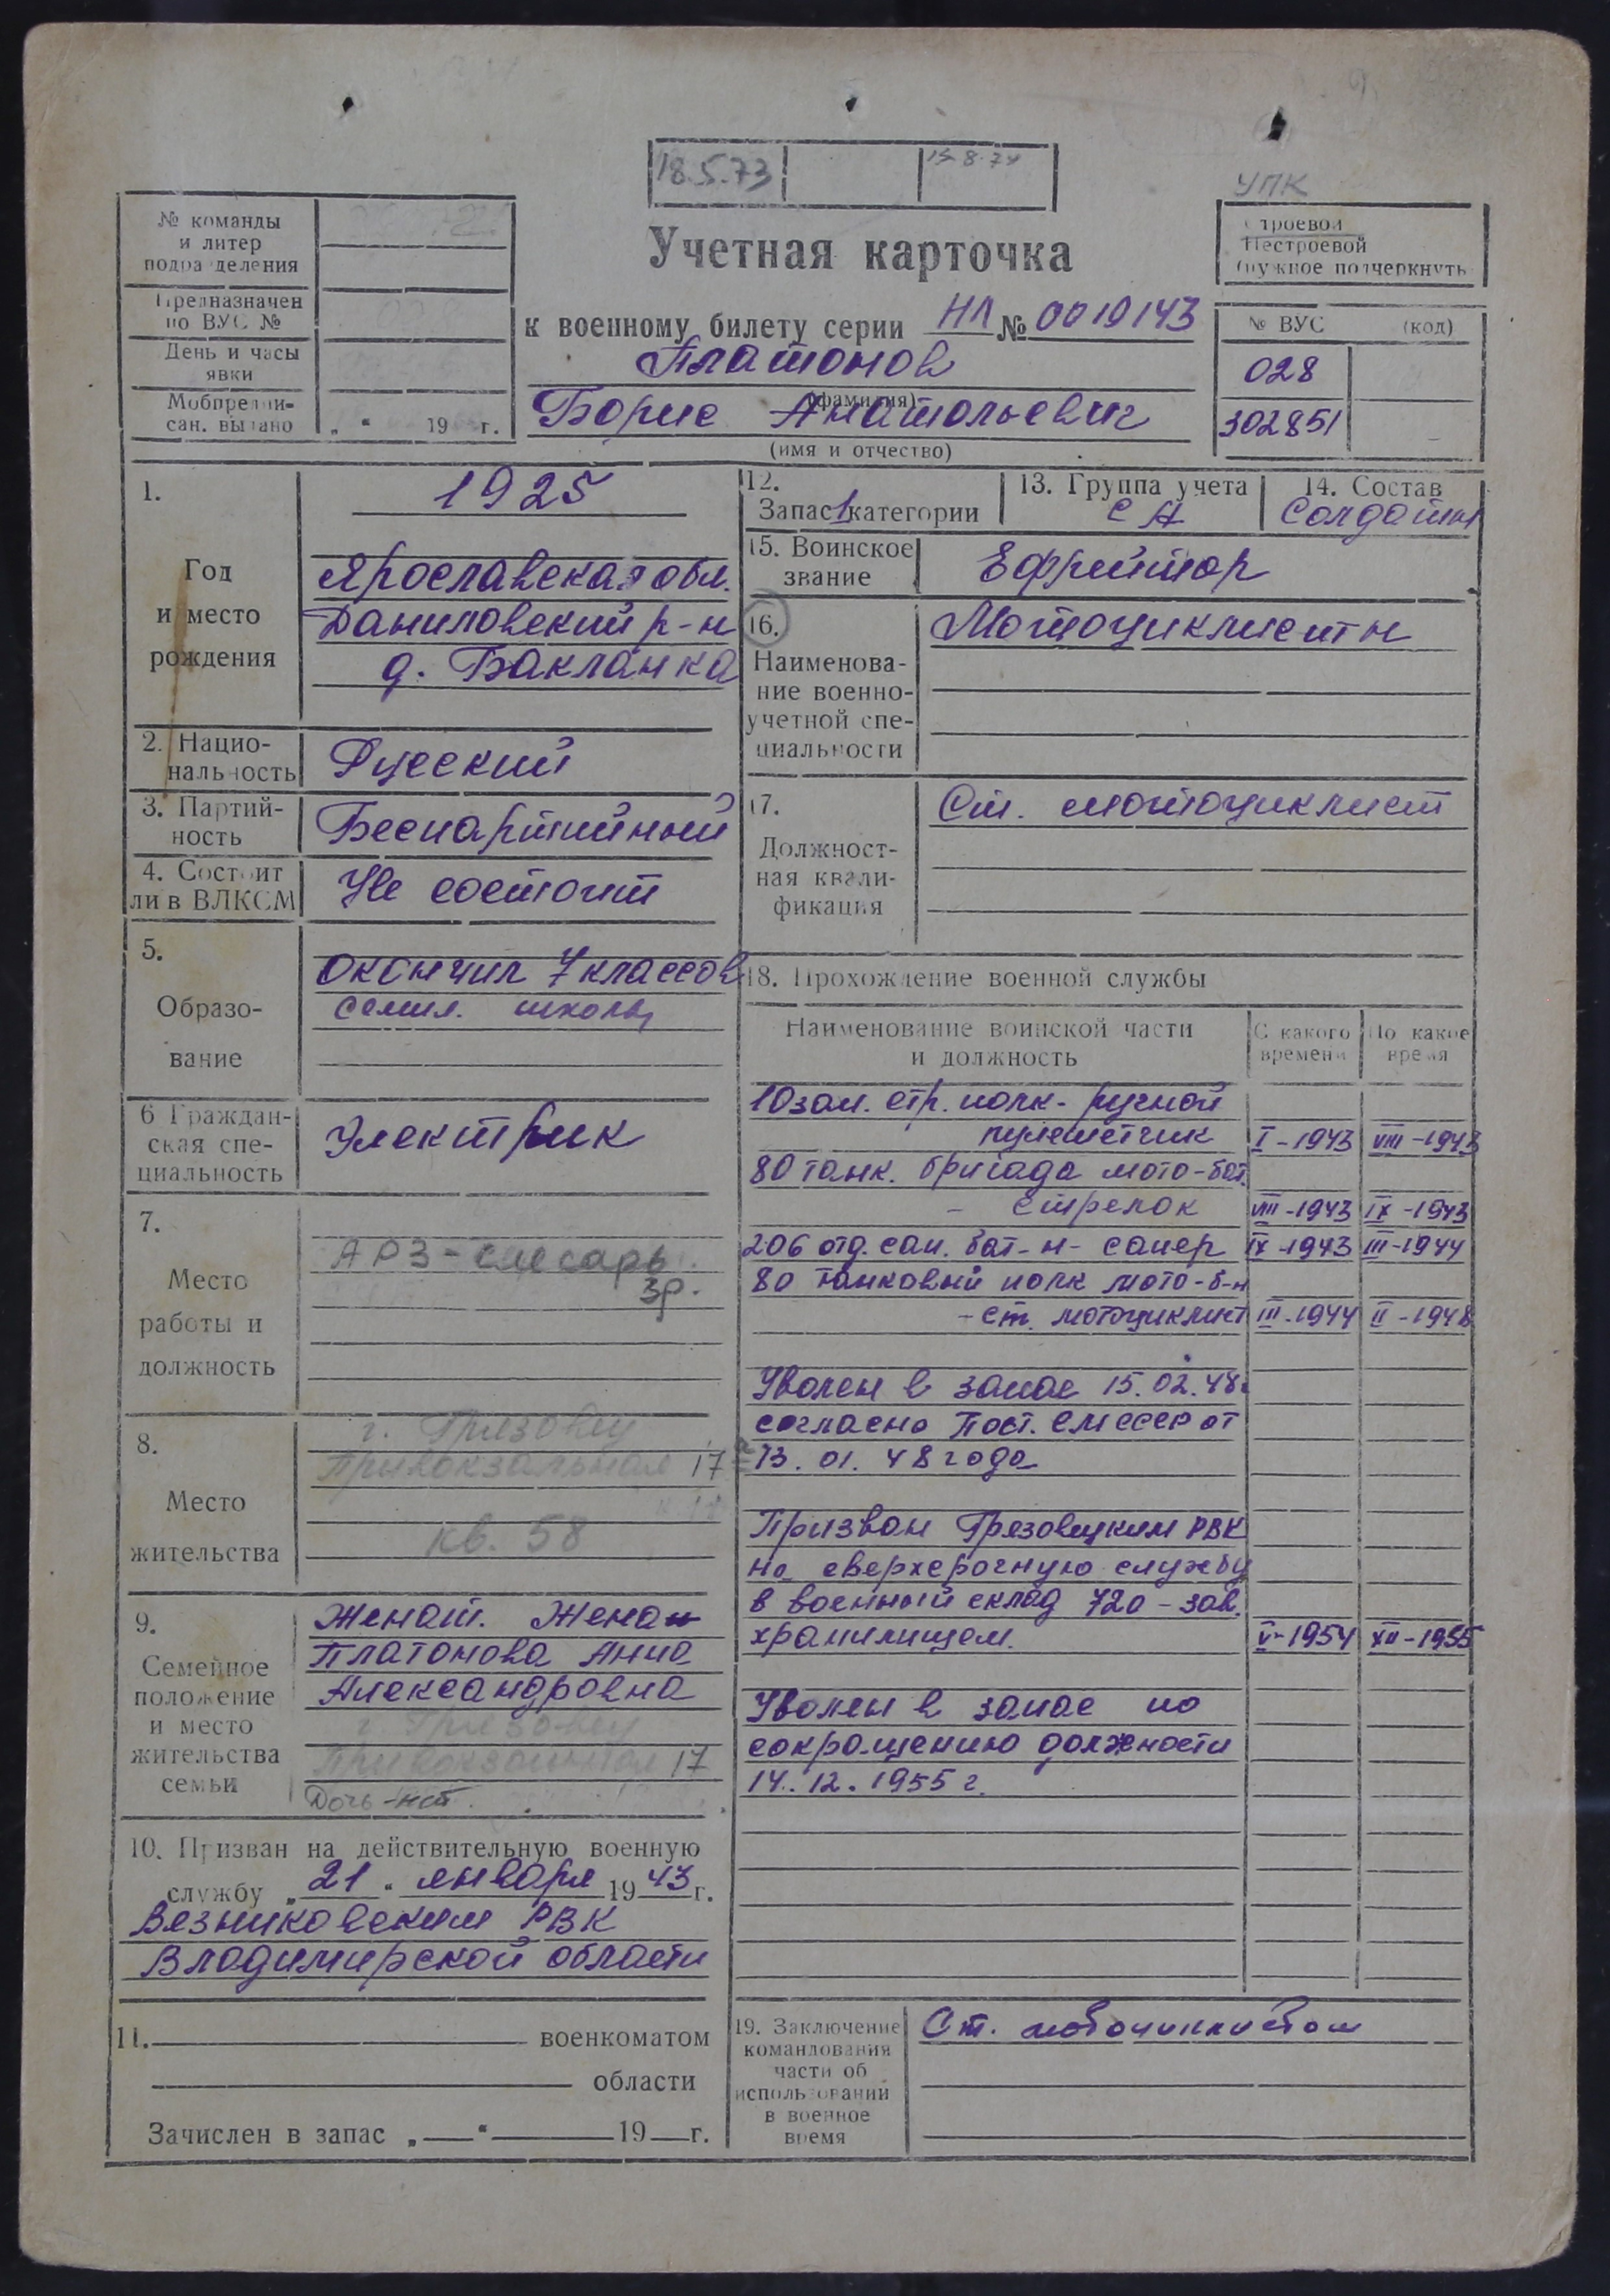 18.5.73
15.8.74
УПК
№ команды
и литер
подразделения
Предназначен
по ВУС №
День и часы
явки
Мобпредпи-
сан. выдано „ “ 19 г.
Учетная карточка
к военному билету серии НЛ № 0019143
Платонов
(фамилия)
Борис Анатольевич
(имя и отчество)
Строевой
Нестроевой
(нужное подчеркнуть
№ ВУС (код)
028
302851
1.
Год
и место
рождения
1925
Ярославская обл.
Даниловский р-н
д. Бакланка
2. Нацио-
нальность
Русский
3. Партий-
ность
Беспартийный
4. Состоит
ли в ВЛКСМ
Не состоит
5.
Образо-
вание
Окончил 7 классов
семил. школы
6 Граждан-
ская спе-
циальность
Электрик
7.
Место
работы и
должность
АРЗ - слесарь
3р.
8.
Место
жительства
г. Грязовец
Привокзальная 17
кв. 58
9.
Семейное
положение
и место
жительства
семьи
Женат. Жена
Платонова Анна
Александровна
г. Грязовец
Привокзальная 17
Дочь - нет
10. Призван на действительную военную
службу „21“ января 1943 г.
Вязниковским РВК
Владимирской области
11. военкоматом
области
Зачислен в запас „ “ 19 г.
12.
Запас 1 категории
13. Группа учета
СА
14. Состав
Солдаты
15. Воинское
звание
Ефрейтор
16.
Наименова-
ние военно-
учетной спе-
циальности
Мотоциклисты
17.
Должност-
ная квали-
фикация
Ст. мотоциклист
18. Прохождение военной службы
Наименование воинской части
и должность
С какого
времени
По какое
время
10 зап. стр. полк - ручной
пулеметчик I-1943 VIII-1943
80 танк. бригада мото-бат.
- стрелок VIII-1943 IX-1943
206 отд. сап. бат-н - сапер IX-1943 III-1944
80 танковый полк мото-б-н
- ст. мотоциклист III-1944 II-1948
Уволен в запас 15.02.48г
согласно Пост. СМ СССР от
13.01.48 года
Призван Грязовецким РВК
на сверхсрочную службу
в военный склад 720 - зав.
хранилищем. V-1954 XII-1955
Уволен в запас по
сокращению должности
14.12.1955 г.
19. Заключение
командования
части об
использовании
в военное
время
Ст. мотоциклистом